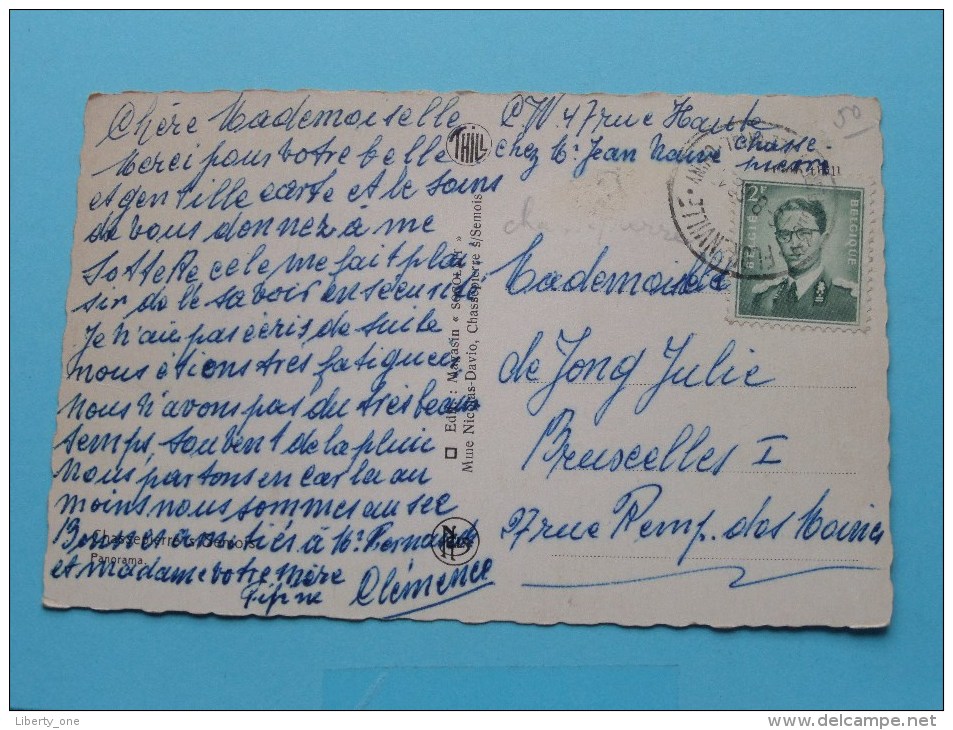 Chère Mademoiselle
Merci pour votre belle
et gentille carte et le soins
de vous donnez a me
cele me fait plai
sir de le savoir en secur
Je n'aie pas écris de suite
nous étions tres fatigues,
nous n'avons pas du tres beau
temps, souvent de la pluie
nous partons en car la au
moins nous sommes au sec
Bonnes amitiés à Mr Fernand
et madame votre mère
Clémence
Chassepierre s/Semois
Panorama.
THILL
Edit. : Magasin « »
Mme Nicolas-Davio, Chassepierre s/Semois
NELS
47 rue Haute
chez Mr Jean chasse
pierre
50
2F
BELGIQUE
BELGIE
FLORENVILLE
Mademoiselle
de Jong Julie
Bruxelles I
27 rue Remp. des Moines
Liberty_one
delcampe.net